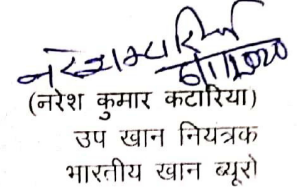 6/11/2020
(नरेश कुमार कटारिया)
उप खान नियत्रक
भारतीय खान ब्यूरो